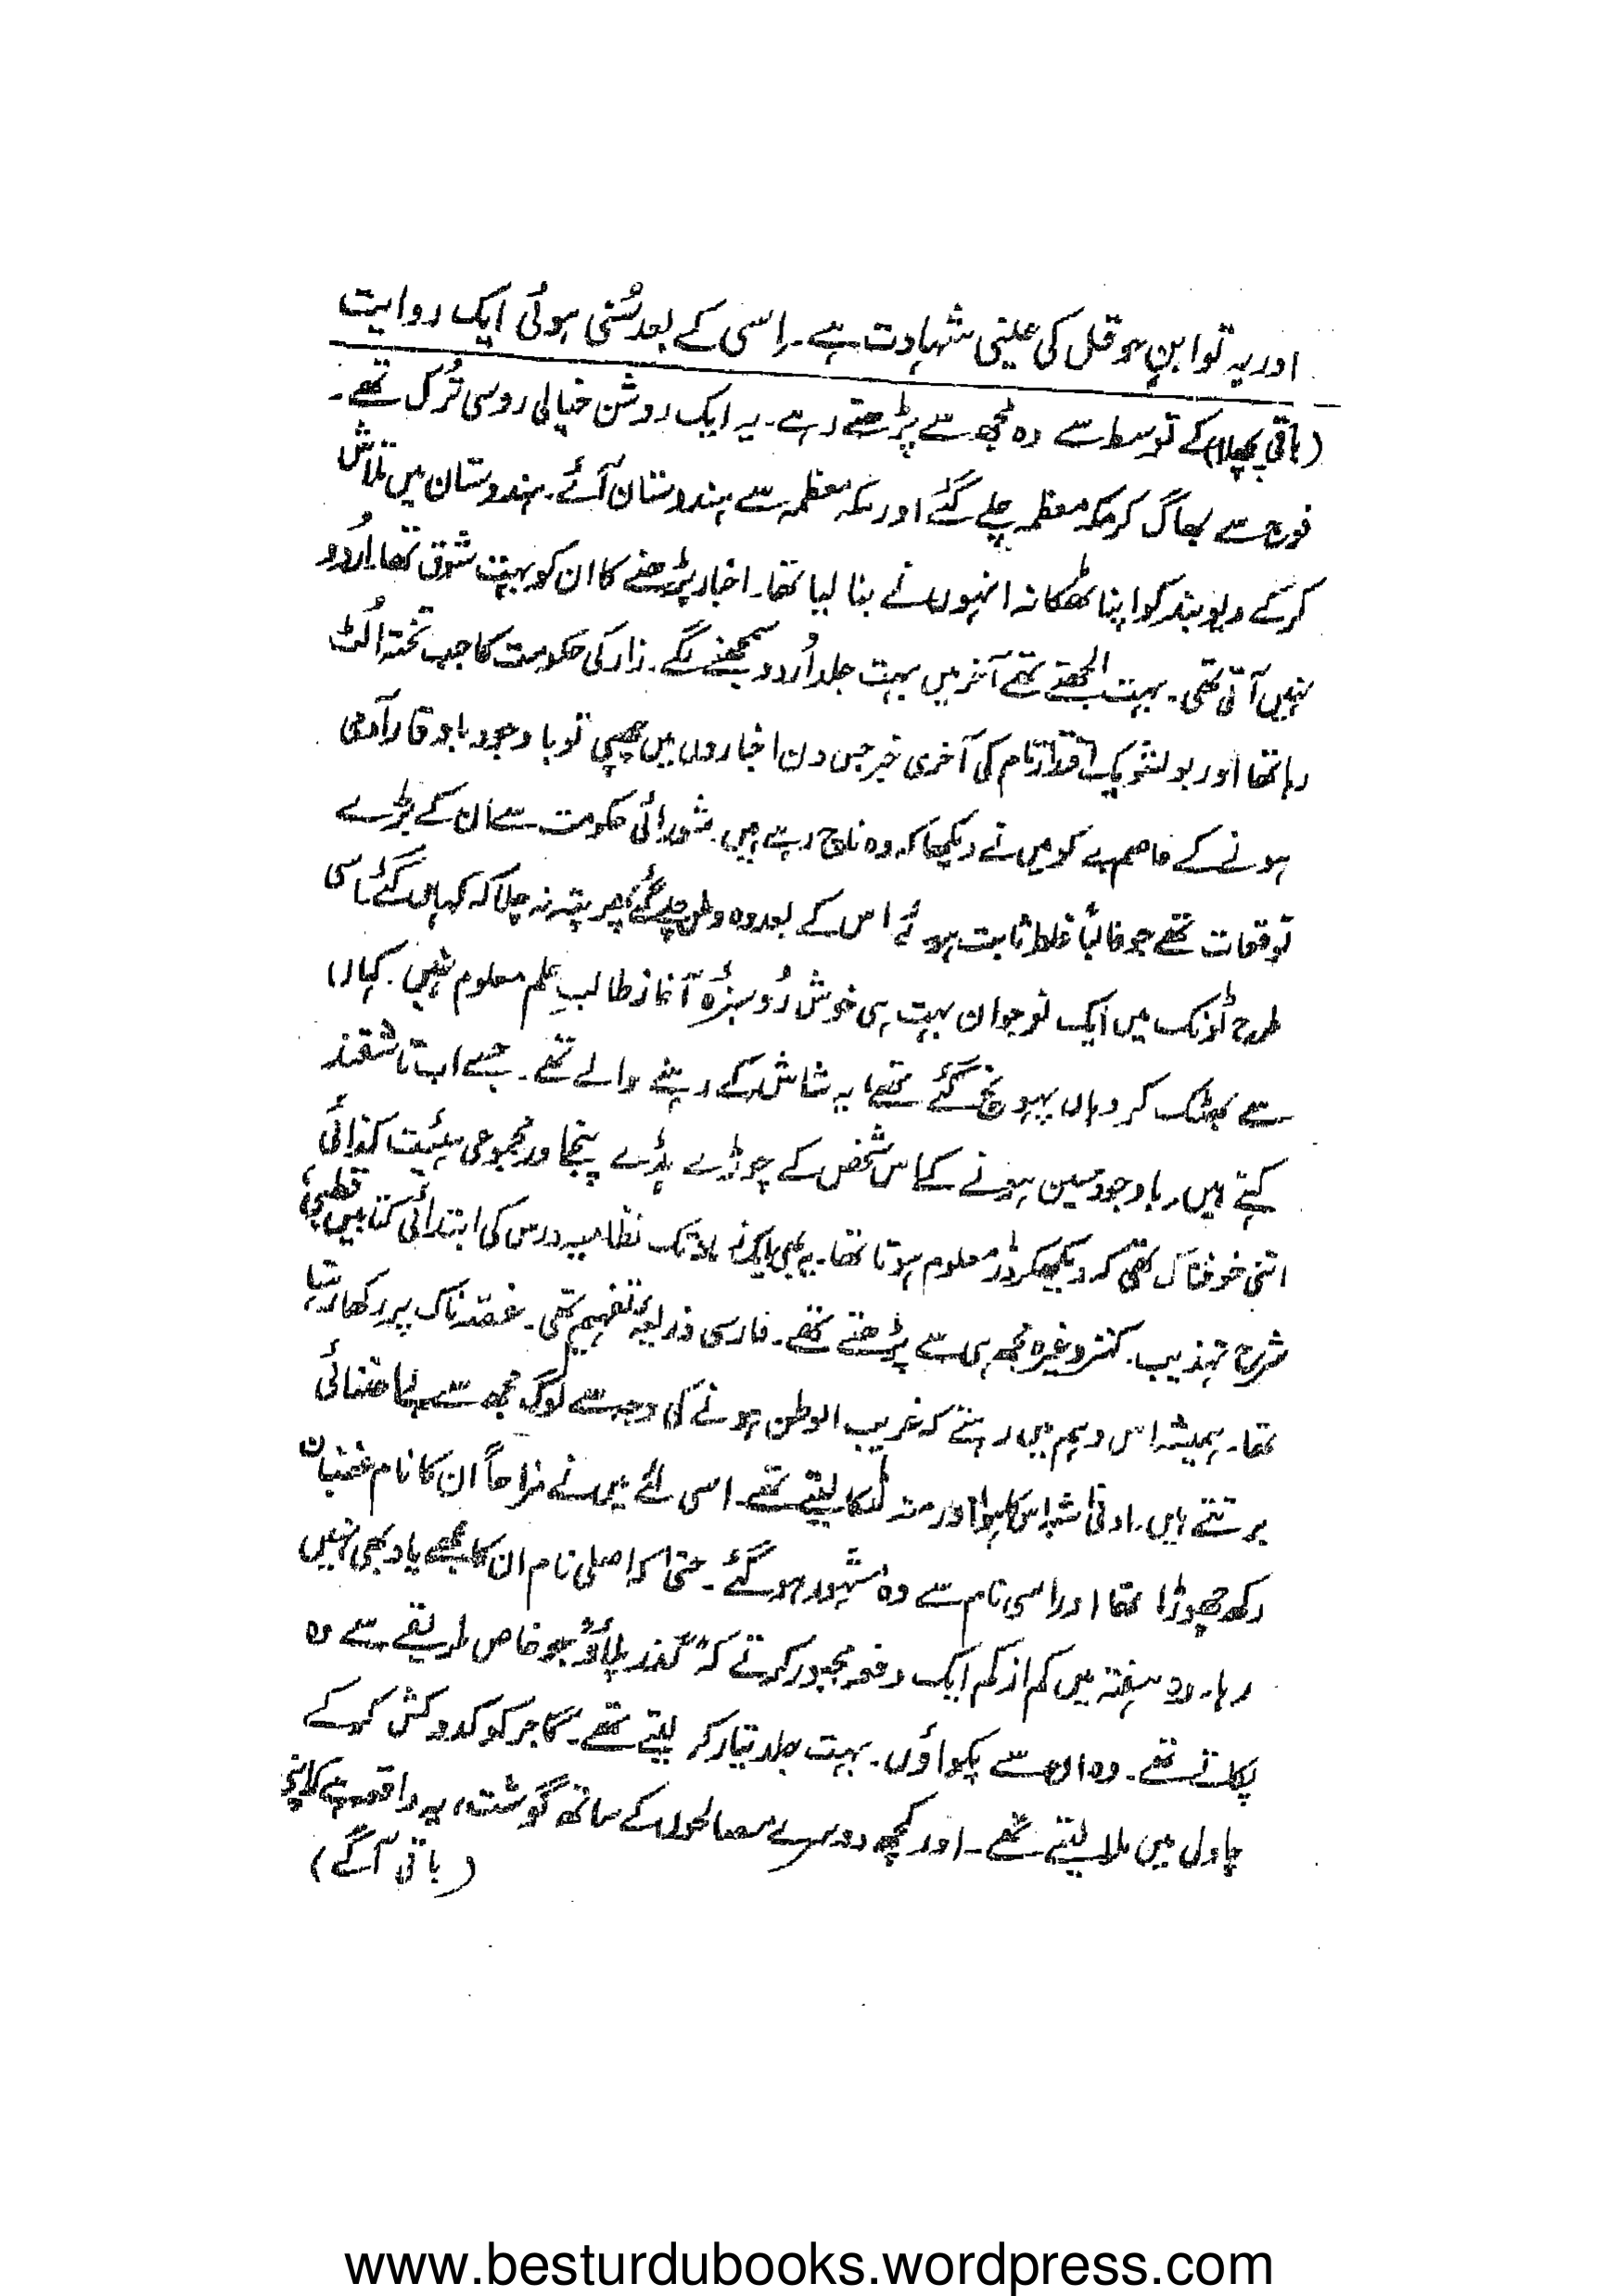 اور یہ تو ابن حوقل کی عینی شہادت ہے۔ اِسی کے بعد سُنی ہوئی ایک روایت
(باقی پچھلا) کے توسط سے وہ مجھ سے پڑھتے رہے۔ یہ ایک روشن خیالی روسی تُرک تھے۔
فوج سے بھاگ کر مکہ معظمہ چلے گئے اور مکہ معظمہ سے ہندوستان آئے۔ ہندوستان میں تلاش
کر کے دیوبند کو اپنا ٹھکانہ انہوں نے بنا لیا تھا۔ اخبار پڑھنے کا ان کو بہت شوق تھا۔ اُردو
نہیں آتی تھی۔ بہت الجھتے تھے آخر میں بہت جلد اُردو سمجھنے لگے۔ زار کی حکومت کا جب تختہ اُلٹ
رہا تھا اور بولشویک کی آخری خبر جس دن اخباروں میں چھپی تو باوجود باوقار آدمی
ہونے کے کو میں نے دیکھا کہ وہ ناچ رہے ہیں۔ شورائی حکومت سے ان کے بڑے
توقعات تھے جو غالباً غلط ثابت ہوئے اس کے بعد وہ وطن چلے گئے پھر پتہ نہ چلا کہ کہاں گئے۔ اسی
طرح ٹونک میں ایک نوجوان بہت ہی خوش رُو سبزۂ آغاز طالبِ علم معلوم نہیں۔ کہاں
سے بھٹک کر وہاں پہونچ گئے تھے، یہ شاش کے رہنے والے تھے۔ جسے اب تاشقند
کہتے ہیں۔ باوجود حسین ہونے کے اس شخص کے چوڑے ہڈے پنجے اور مجموعی ہیئت کذائی
اتنی خوفناک تھی کہ دیکھ کر ڈر معلوم ہوتا تھا۔ یہ بھی ایک زمانہ تک نظامیہ درس کی ابتدائی کتابیں قطبی،
شرح تہذیب۔ کنز وغیرہ مجھ ہی سے پڑھتے تھے۔ فارسی ذریعۂ تفہیم تھی۔ غصہ ناک پر رکھا رہتا
تھا۔ ہمیشہ اس وہم میں رہتے کہ غریب الوطن ہونے کی وجہ سے لوگ مجھ سے بے اعتنائی
برتتے ہیں۔ ادنیٰ شبہ اس کا ہوا اور منہ لٹکا لیتے تھے۔ اسی لئے میں نے مزاحاً ان کا نام غضبان
رکھ چھوڑا تھا اور اسی نام سے وہ مشہور ہو گئے۔ حتیٰ کہ اصلی نام ان کا مجھے یاد بھی نہیں
رہا۔ وہ ہفتہ میں کم از کم ایک دفعہ مجبور کرتے کہ "گذر پلاؤ" جو خاص طریقے سے وہ
پکاتے تھے۔ وہ ان سے پکواؤں۔ بہت جلد تیار کر لیتے تھے۔ گاجر کو کدوکش کر کے
چاول میں ملا لیتے تھے۔ اور کچھ دوسرے مصالحوں کے ساتھ گوشت، یہ واقعہ ہے کہ اپنی
(باقی آگے)
www.besturdubooks.wordpress.com